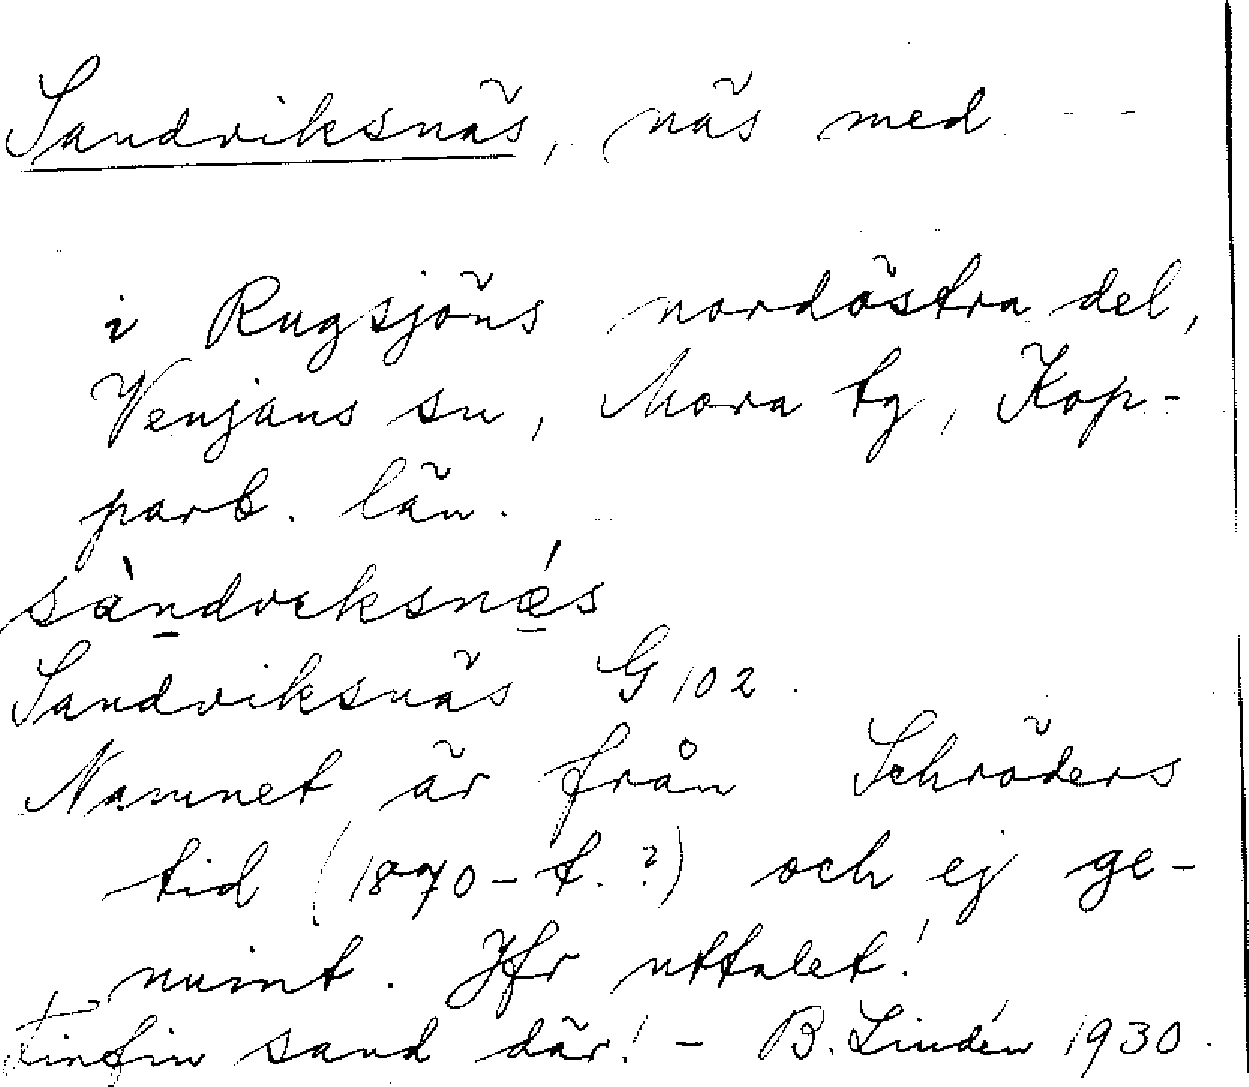 Sandviksnäs, näs med - -
i Rugsjöns nordöstra del,
Venjans sn, Mora tg, Kop-
parb. län.
sàndveksnǽs
Sandviksnäs G 102.
Namnet är från Schröders
tid (1870-t.?) och ej ge-
nuint. Jfr uttalet!
Finfin sand där! - B. Lindén 1930.